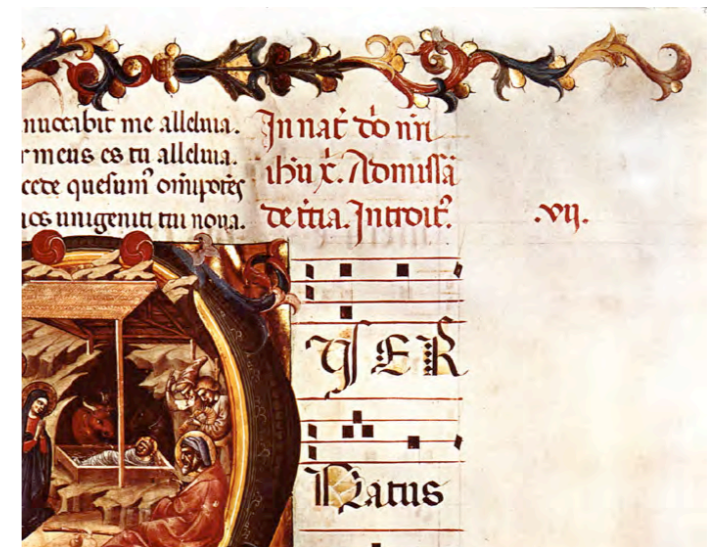 nuocabit me alleluia.
meus es tu alleluia.
cede quesum̄ om̄ipotēs
unigeniti tui noua.
In nat̄ dō nr̄i
ih̄u x̄. Ad missā
de t̄tia. Introit᷒.
.vij.
PUER
Natus